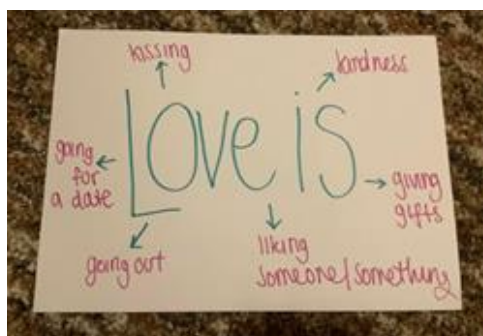 kissing
kindness
Love is
going
for
a date
giving
gifts
going out
liking
someone/something